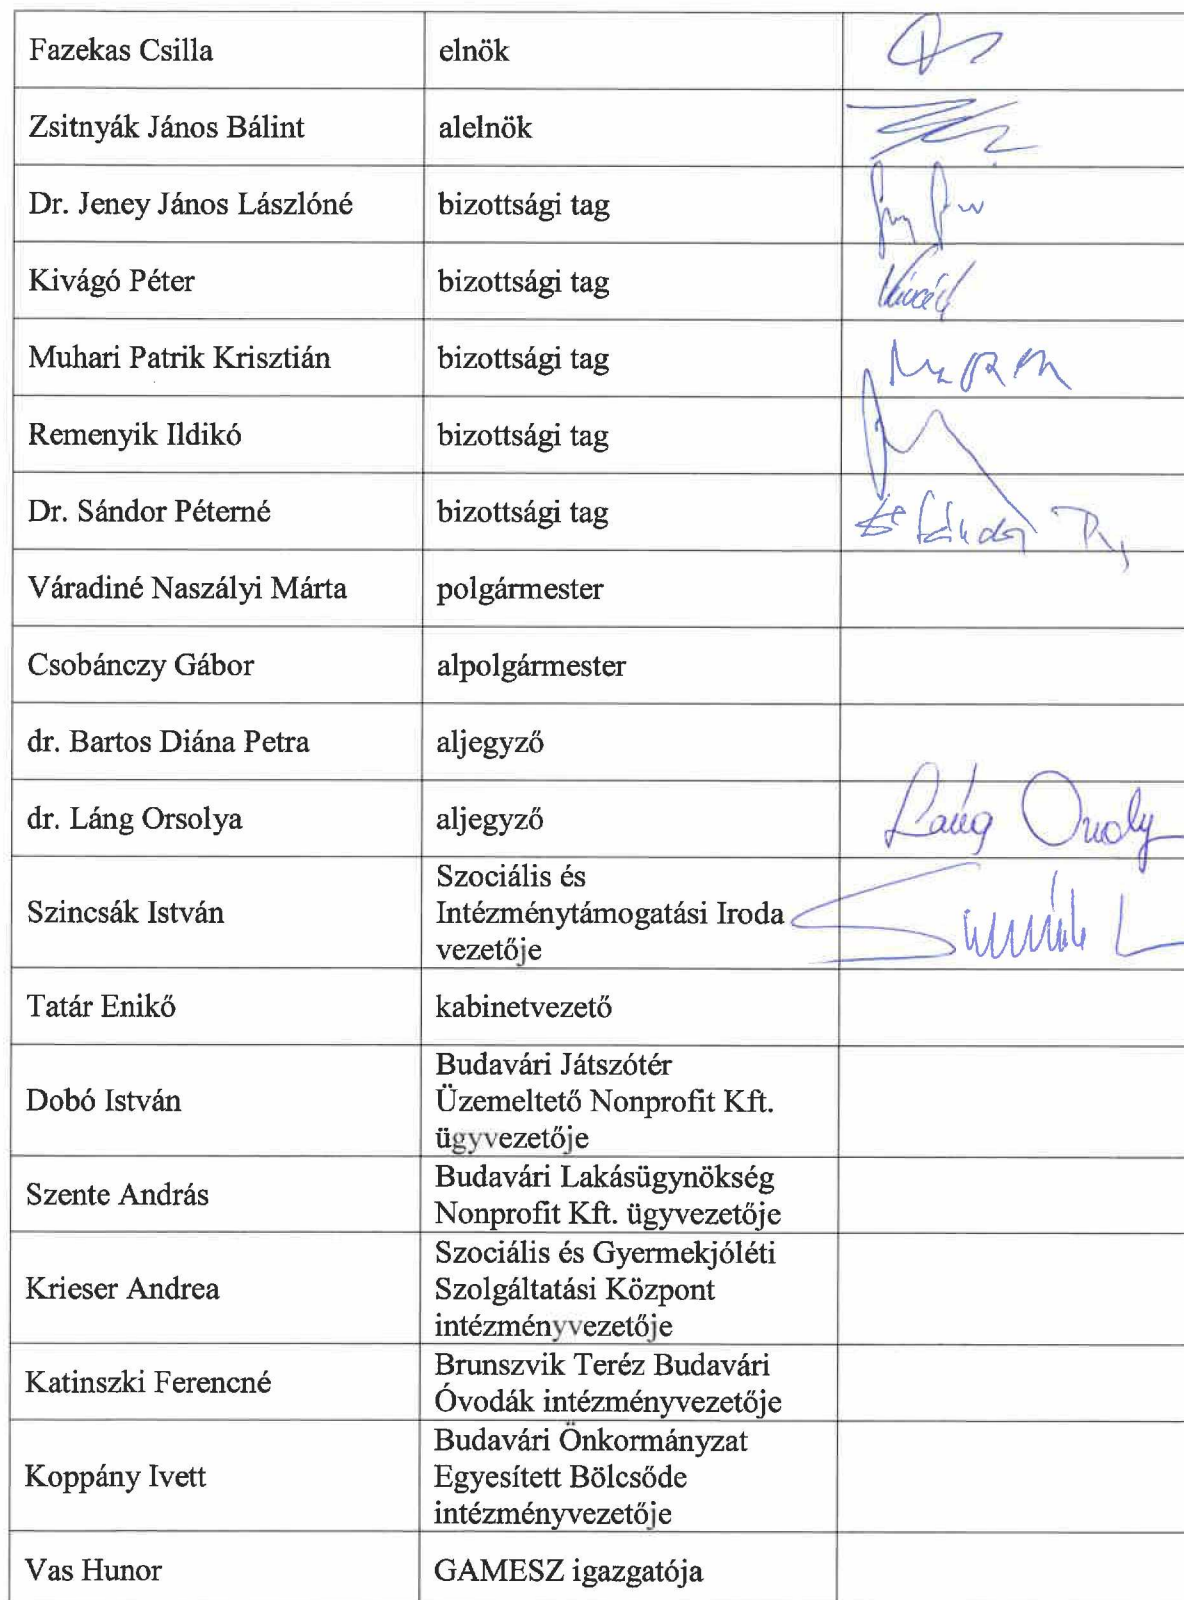 Fazekas Csilla elnök
Zsitnyák János Bálint alelnök
Dr. Jeney János Lászlóné bizottsági tag
Kivágó Péter bizottsági tag
Muhari Patrik Krisztián bizottsági tag
Remenyik Ildikó bizottsági tag
Dr. Sándor Péterné bizottsági tag
Váradiné Naszályi Márta polgármester
Csobánczy Gábor alpolgármester
dr. Bartos Diána Petra aljegyző
dr. Láng Orsolya aljegyző Láng Orsoly
Szincsák István
Szociális és
Intézménytámogatási Iroda
vezetője
Tatár Enikő kabinetvezető
Dobó István
Budavári Játszótér
Üzemeltető Nonprofit Kft.
ügyvezetője
Szente András
Budavári Lakásügynökség
Nonprofit Kft. ügyvezetője
Krieser Andrea
Szociális és Gyermekjóléti
Szolgáltatási Központ
intézményvezetője
Katinszki Ferencné
Brunszvik Teréz Budavári
Óvodák intézményvezetője
Koppány Ivett
Budavári Önkormányzat
Egyesített Bölcsőde
intézményvezetője
Vas Hunor GAMESZ igazgatója